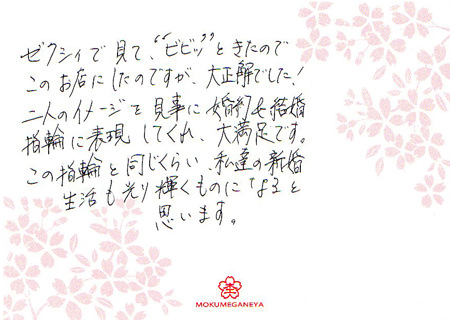 ゼクシィで見て、“ビビッ”ときたので
このお店にしたのですが、大正解でした！
二人のイメージを見事に婚約&結婚
指輪に表現してくれ、大満足です。
この指輪と同じくらい、私達の新婚
生活も光り輝くものになると
思います。
MOKUMEGANEYA